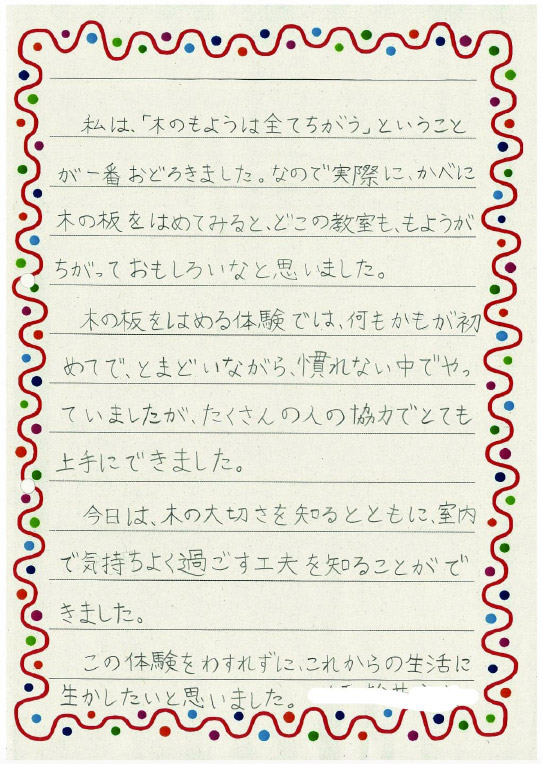 私は、「木のもようは全てちがう」ということ
が一番おどろきました。なので実際に、かべに
木の板をはめてみると、どこの教室も、もようが
ちがっておもしろいなと思いました。
木の板をはめる体験では、何もかもが初
めてで、とまどいながら、慣れない中でやっ
ていましたが、たくさんの人の協力でとても
上手にできました。
今日は、木の大切さを知るとともに、室内
で気持ちよく過ごす工夫を知ることがで
きました。
この体験をわすれずに、これからの生活に
生かしたいと思いました。